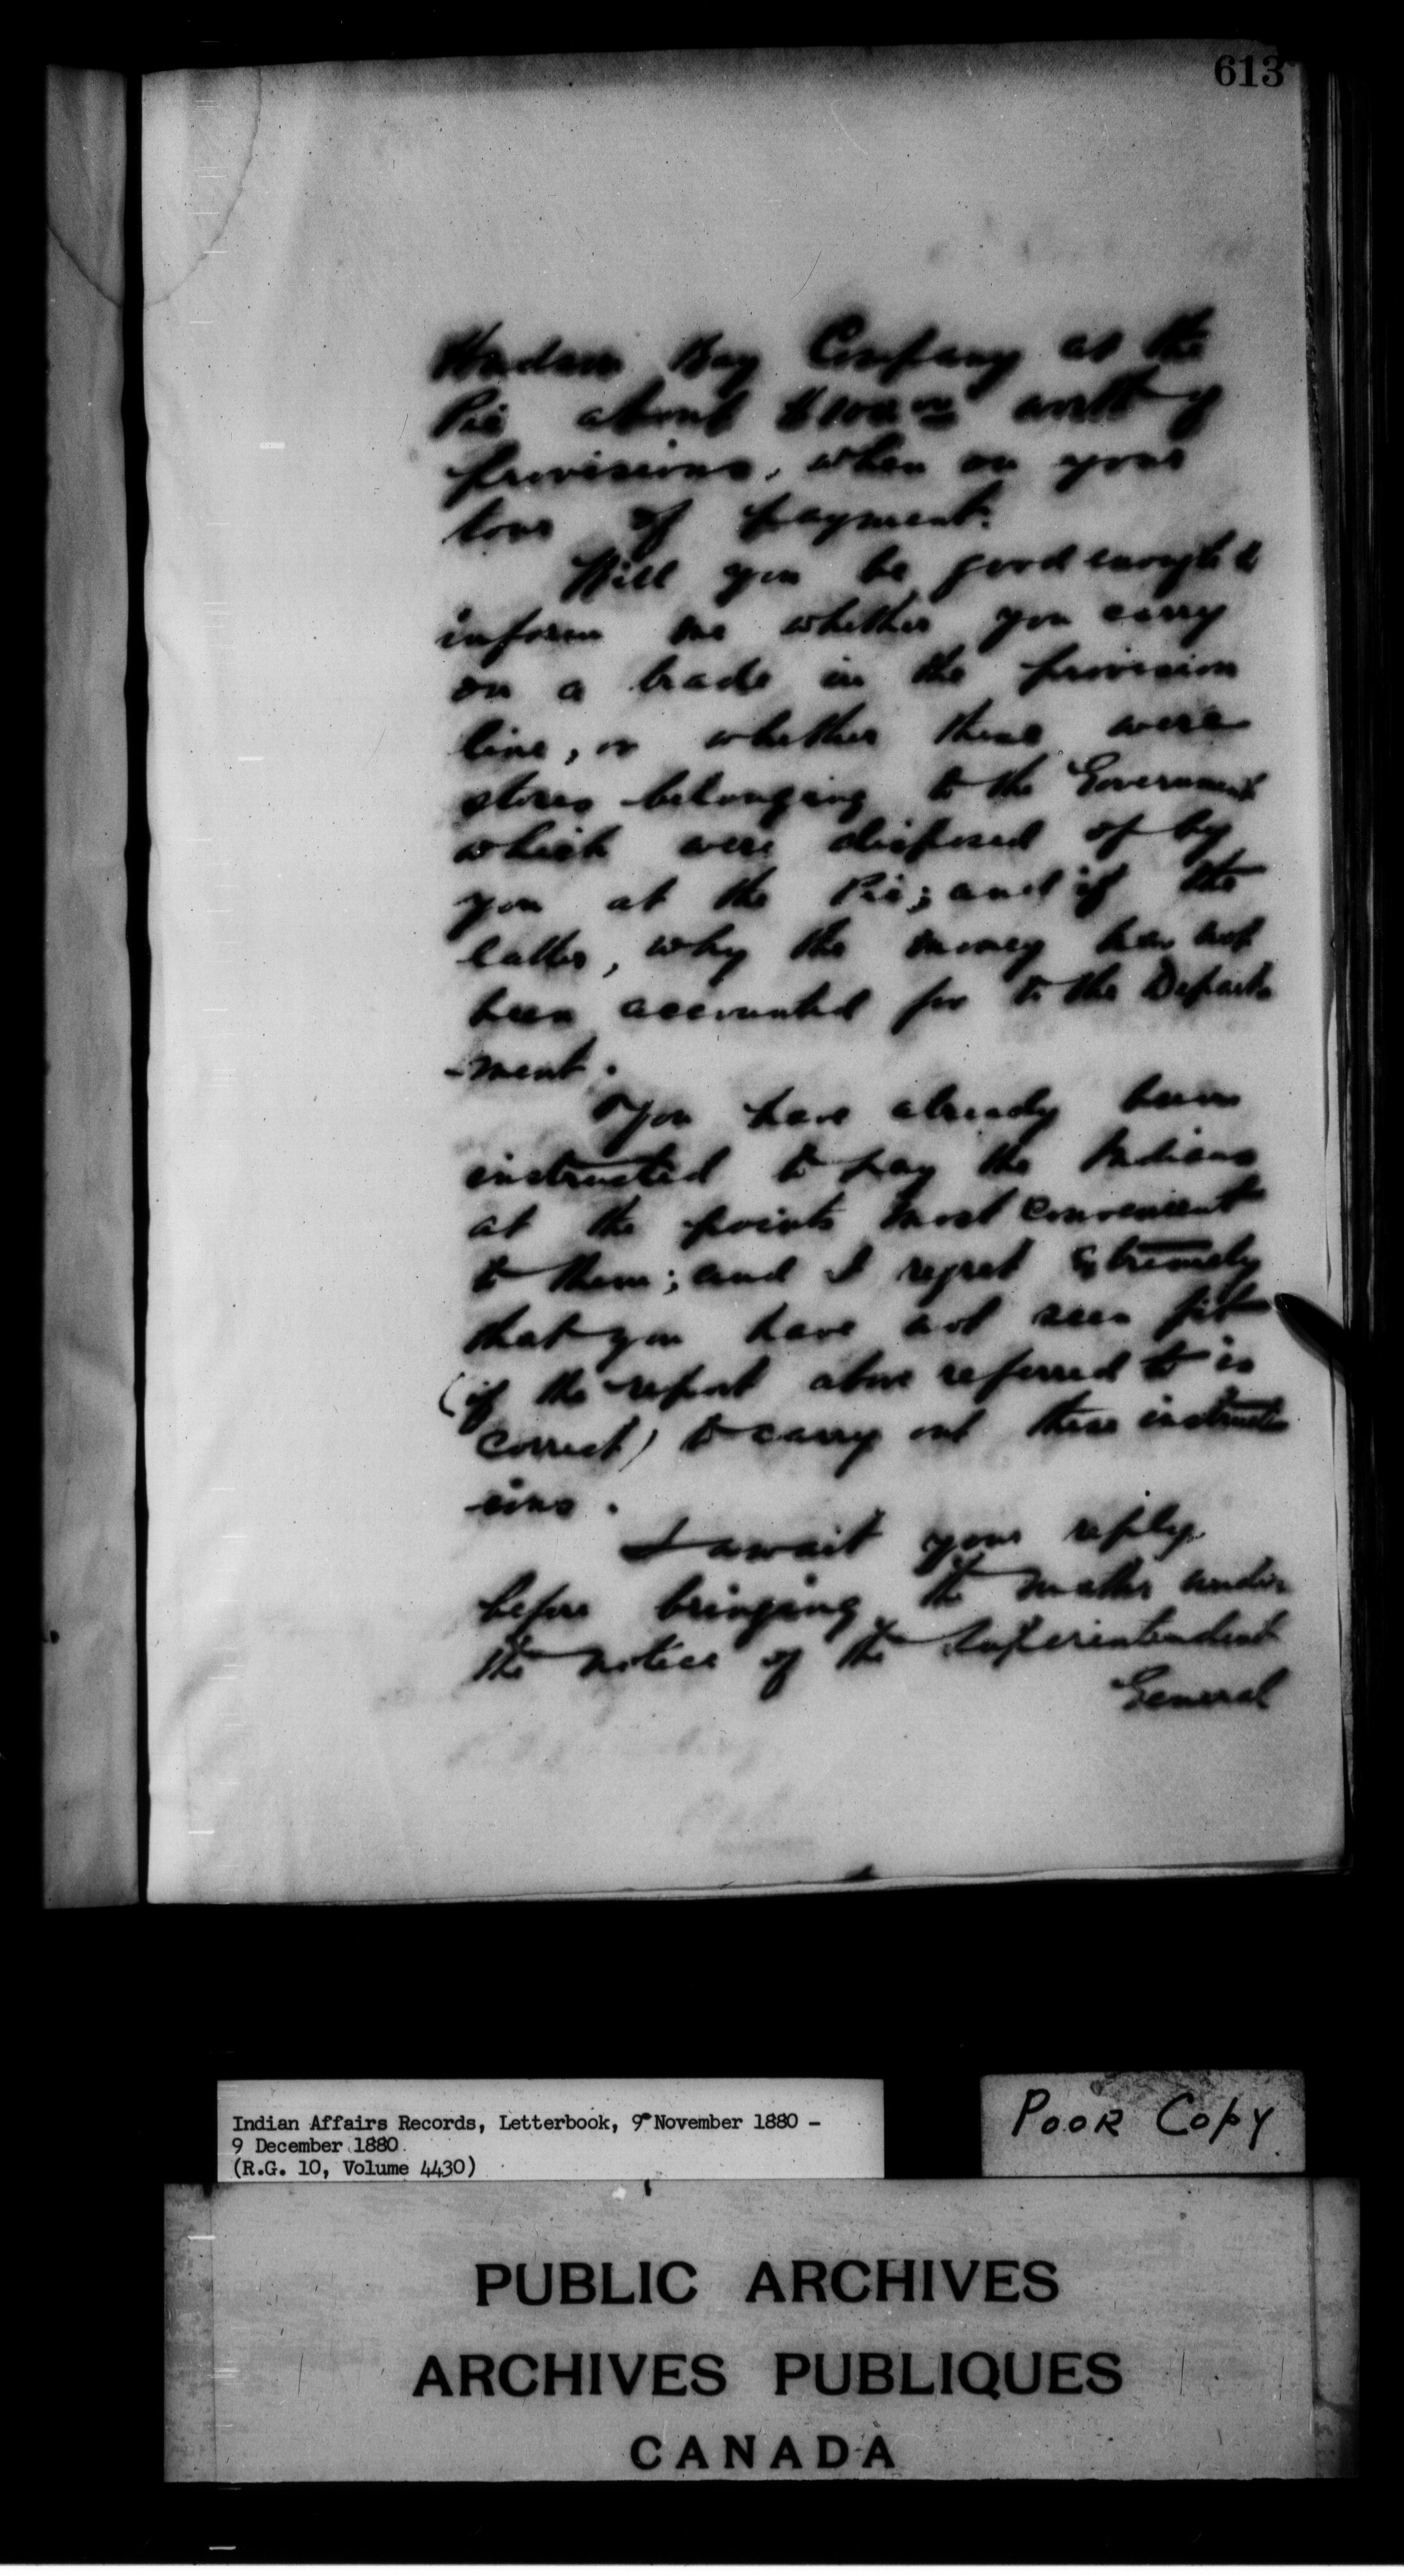 613
Hudson Bay Company at the
Pic about worth of
provisions, when on your
tour of payment.
Will you be good enough to
inform me whether you carry
on a trade in the provision
line, or whether these were
stores belonging to the Government
which were disposed of by
you at the Pic; and if the
latter, why the money has not
been accounted for to the Depart-
-ment.
You have already been
instructed to pay the Indians
at the points most convenient
to them; and I regret extremely
that you have not seen fit
(if the report above referred to is
correct) to carry out these instruct-
-ions.
I await your reply
before bringing the matter under
the notice of the Superintendent
General
Indian Affairs Records, Letterbook, 9 November 1880 -
9 December 1880.
(R.G. 10, Volume 4430)
POOR COPY
PUBLIC ARCHIVES
ARCHIVES PUBLIQUES
CANADA